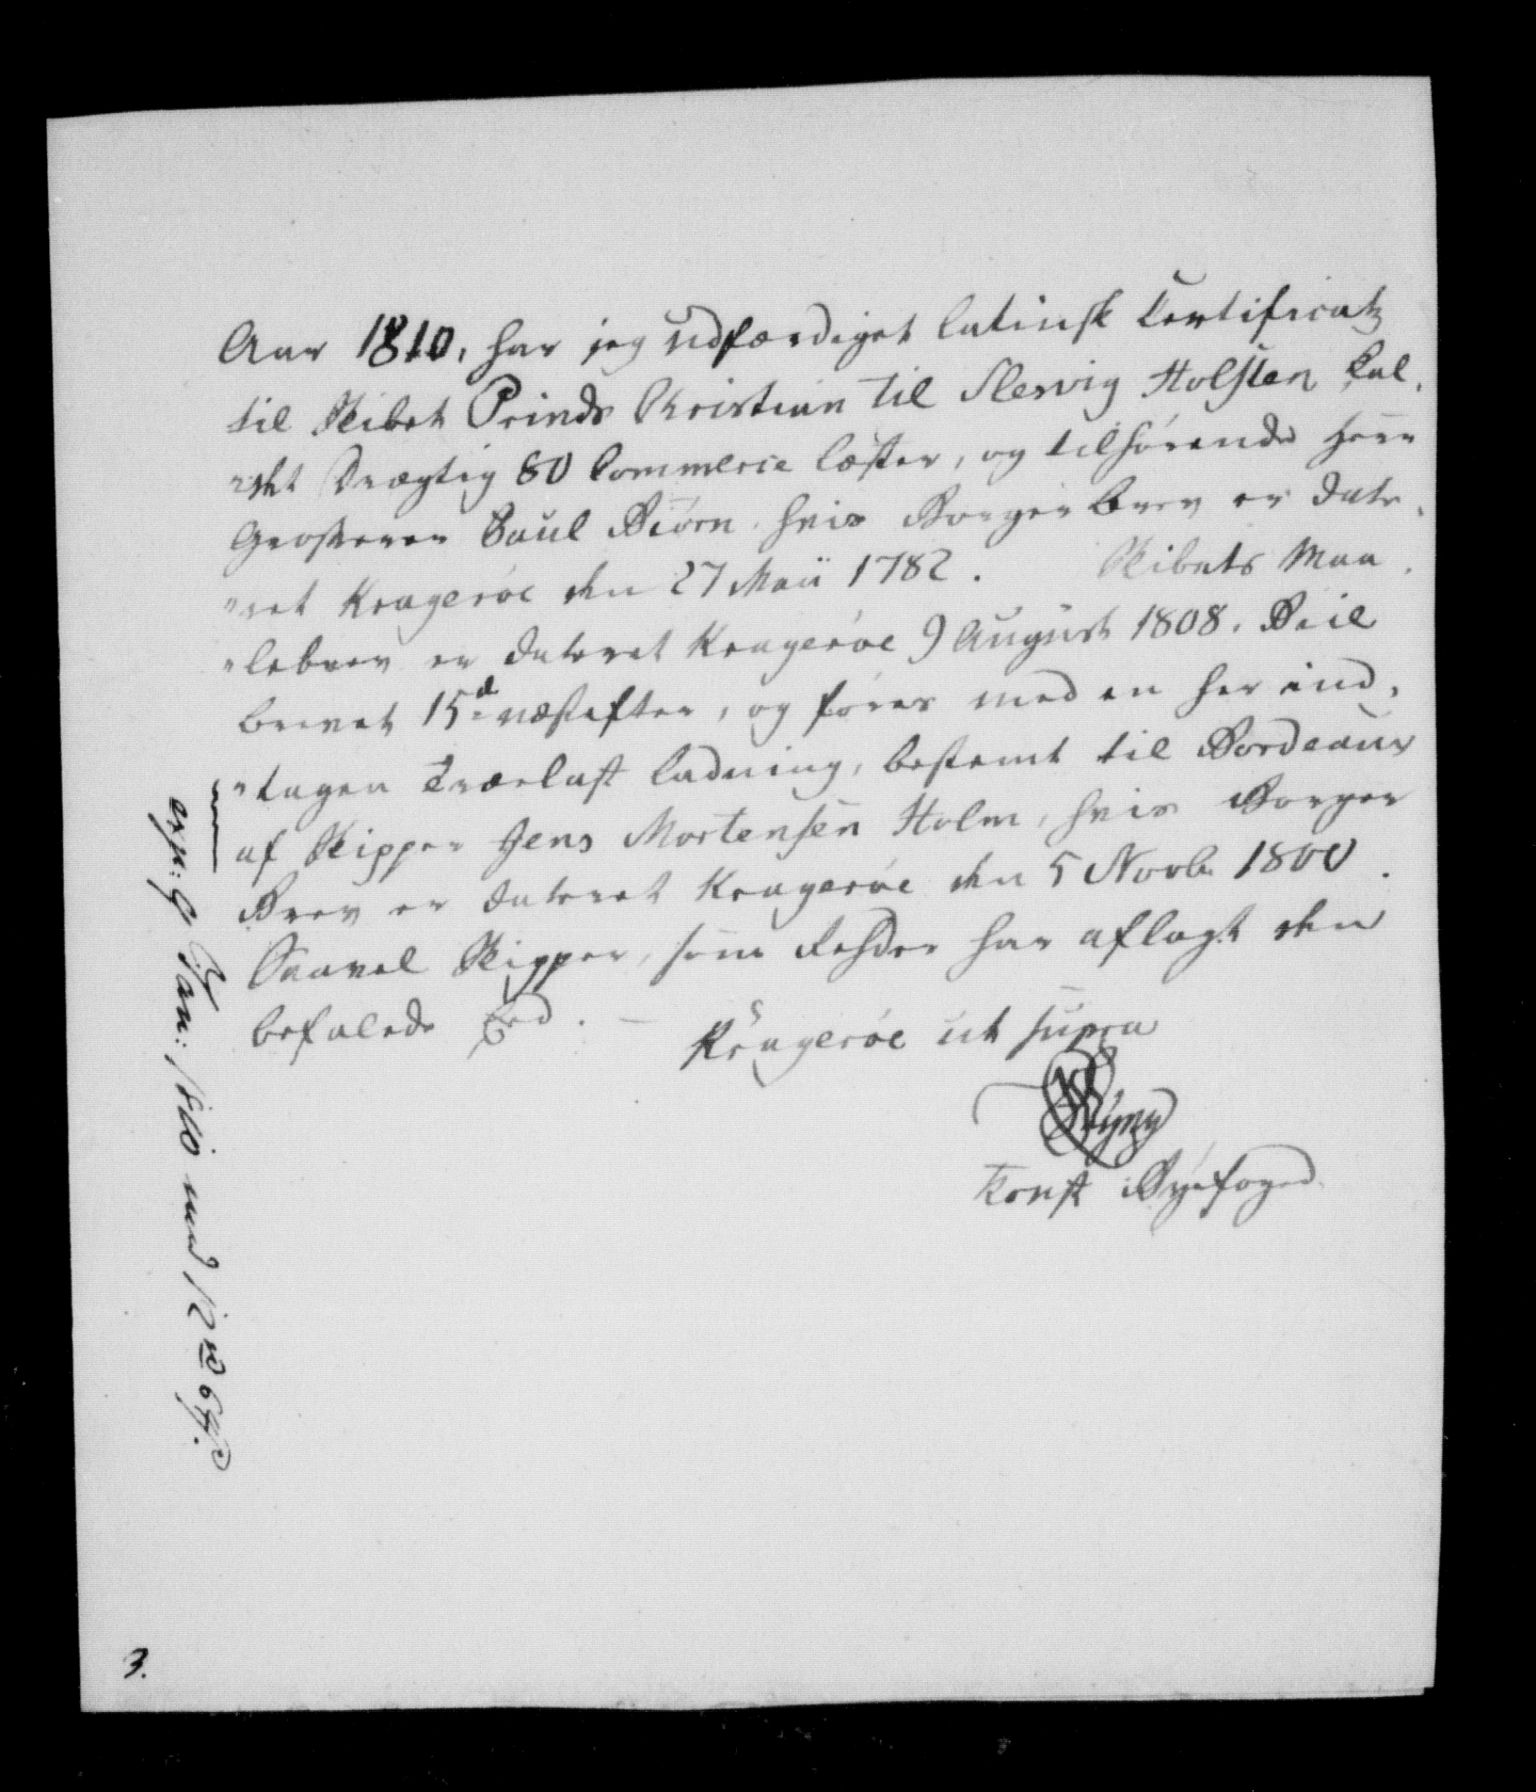 Aar 1810, har jeg udfærdiget latinsk Certificatz
til Skibet Prinds Kristian til Slesvig Holsten kal,
„det Drægtig 80 Commerce læster, og tilhørende Herr
Grosserer Paul Biørn hvis Borgerbrev er date,
„ret Kragerøe den 27 Maii 1782. Skibets Maa,
„lebrev er dateret Kragerøe 9 August 1808. Biil
brevet 15d. næstefter, og føres med en her ind,
„tagen Trælast ladning, bestemt til Bordeaux
af Skipper Jens Mortensen Holm, hvis Borger
Brev er dateret Kragerøe den 5 Novbr 1800.
Saavel Skipper, som Rehder har aflagt den
befalede Eed. —
Kragerøe ut supra
Konst Byefoged
exp: 9 Jan: 1810 med 12 rd 6
3.